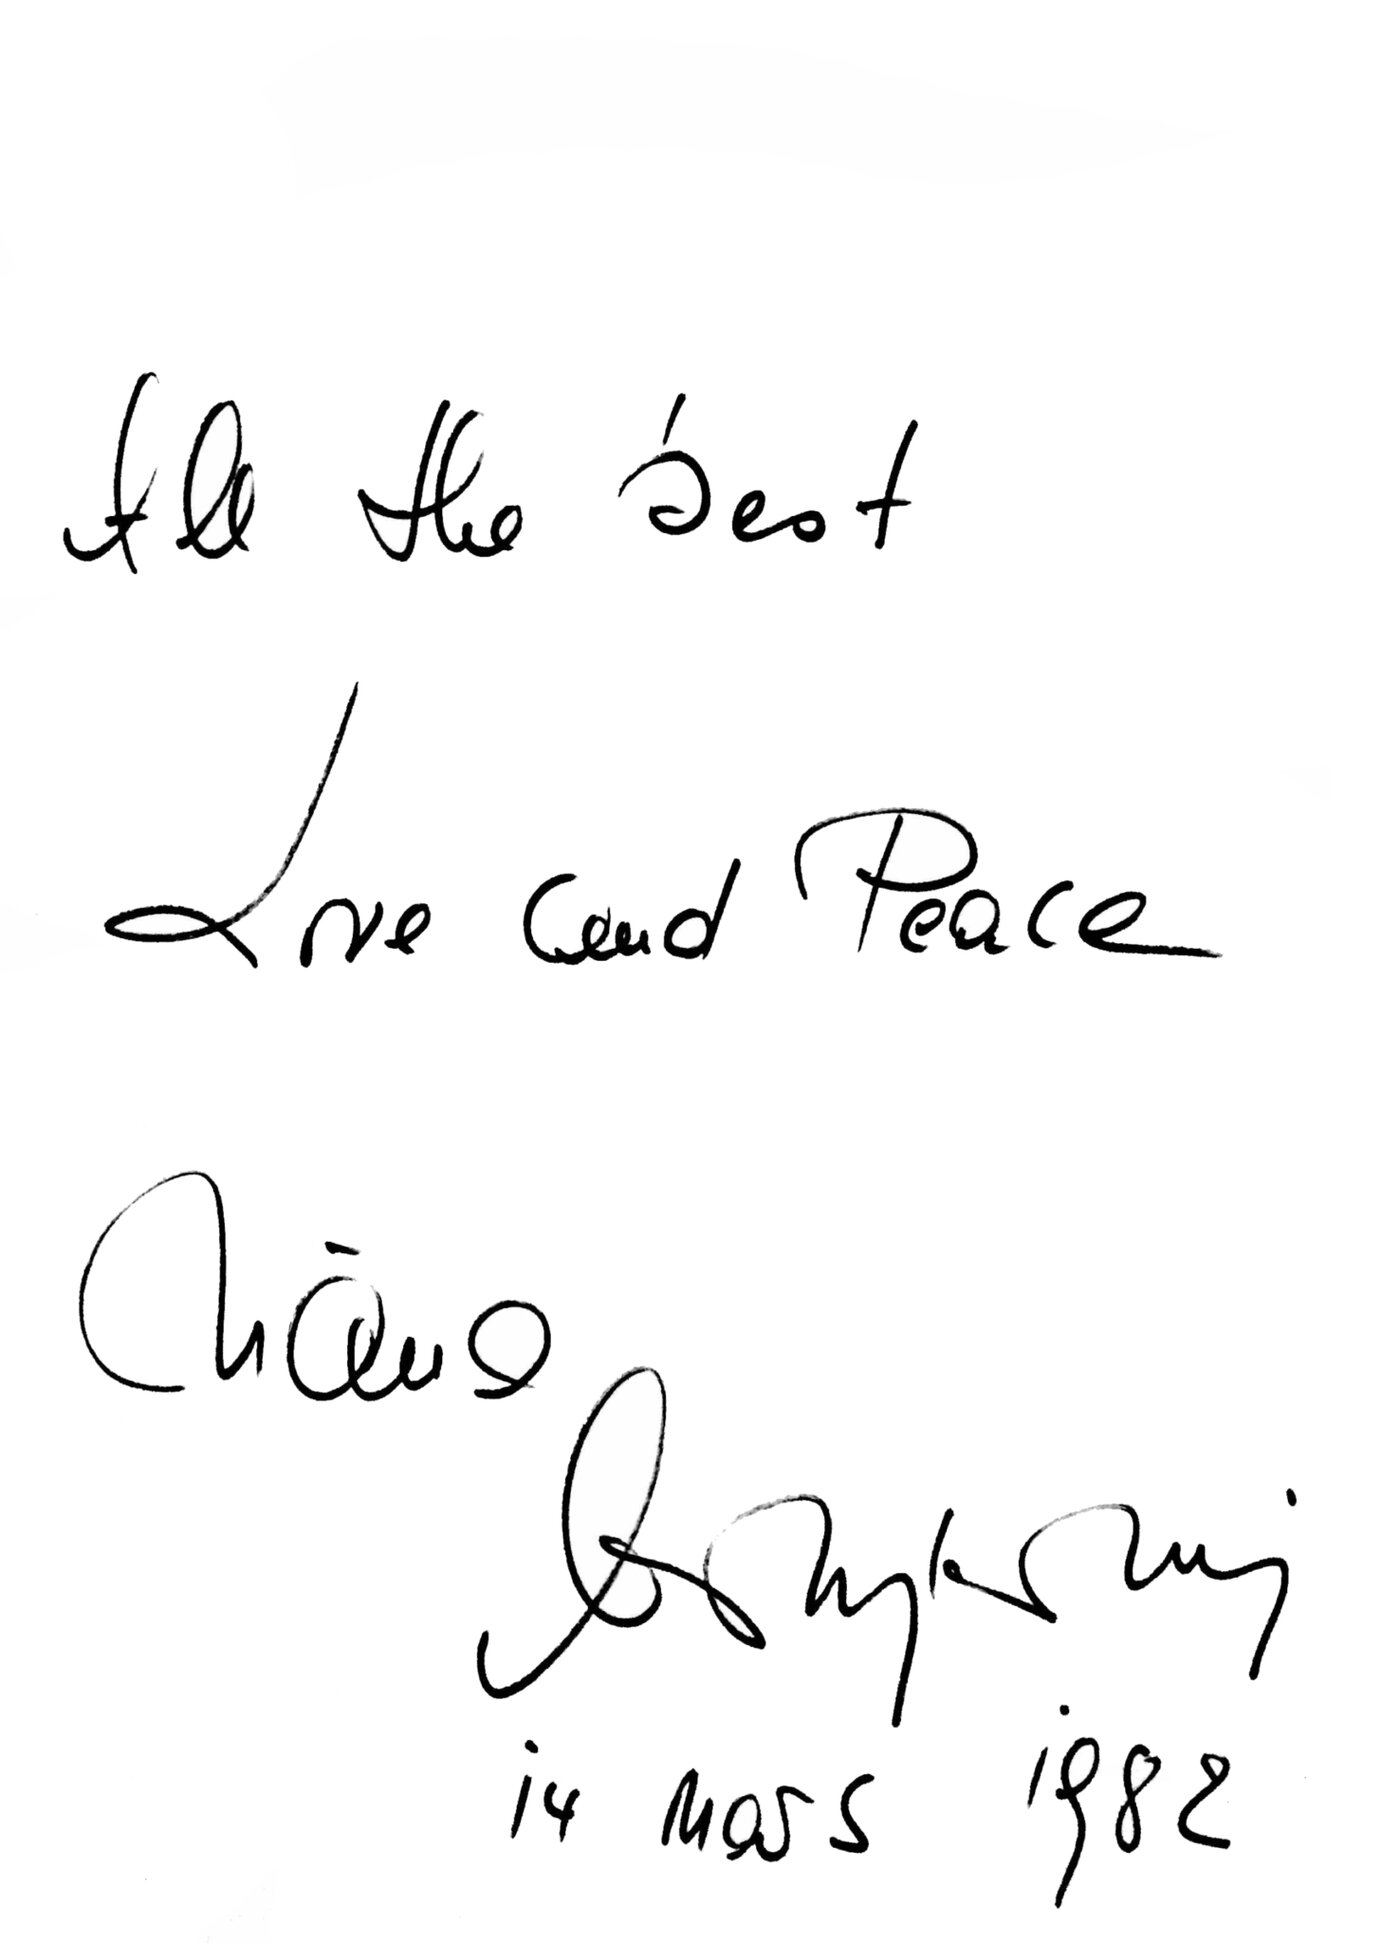 All the best
Love and Peace
14 Mars 1982